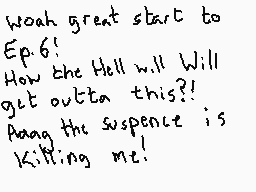 woah great start to
Ep.6!
How the Hell will Will
get outta this?!
Aaag the suspence is
Killing me!